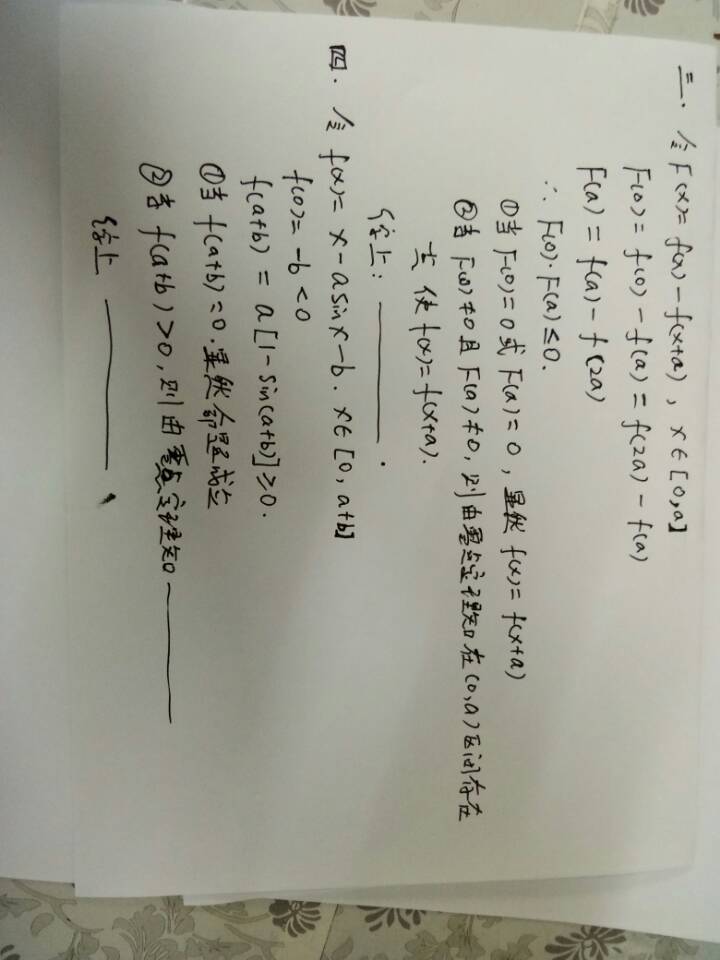 三. 令F(x)= f(x)-f(x+a), x∈[0,a]
F(0)= f(0)-f(a)=f(2a)-f(a)
F(a)= f(a)-f(2a)
∴ F(0)·F(a)≤0.
①当F(0)=0或F(a)=0, 显然f(x)= f(x+a)
②当F(0)≠0且F(a)≠0, 则由零点定理知在(0,a)区间存在
一点使f(x)=f(x+a).
综上: ______.
四. 令f(x)= x-asinx-b. x∈[0,a+b]
f(0)= -b<0
f(a+b) = a[1-sin(a+b)]≥0.
①当f(a+b)=0.显然命题成立
②当f(a+b)>0,则由零点定理知______
综上______.